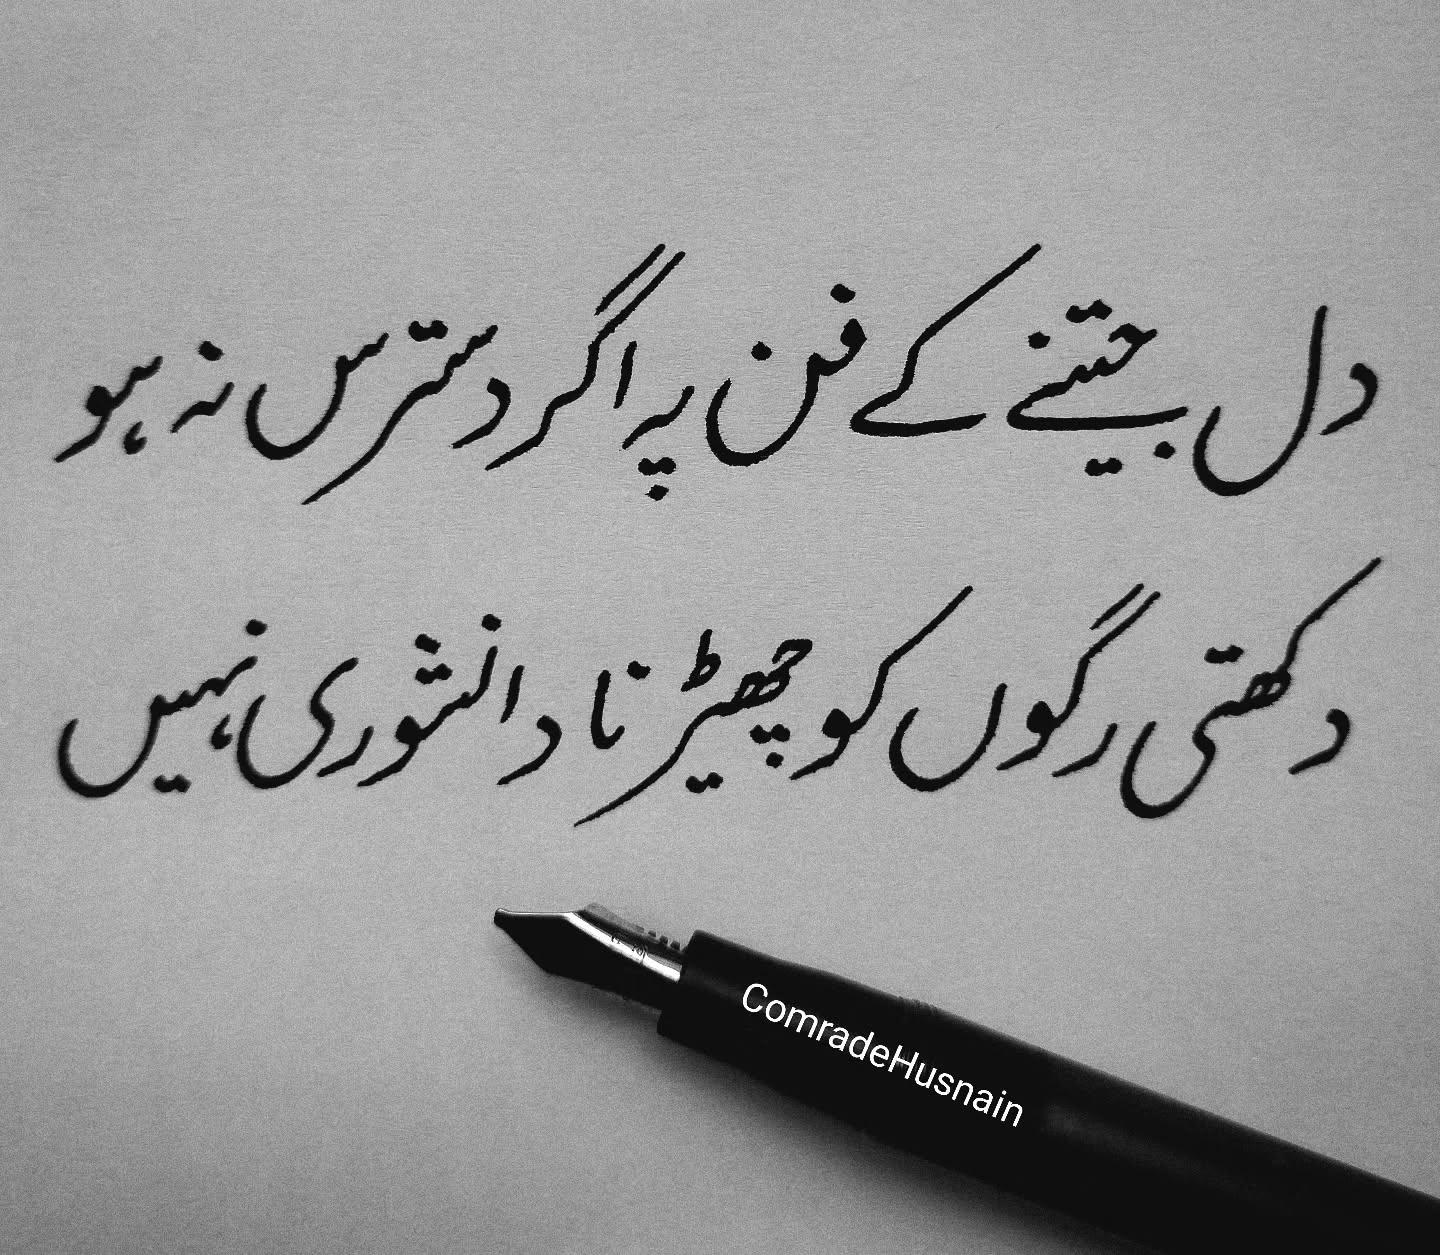 دل جیتنے کے فن پہ اگر دسترس نہ ہو
دکھتی رگوں کو چھیڑنا دانشوری نہیں
ComradeHusnain